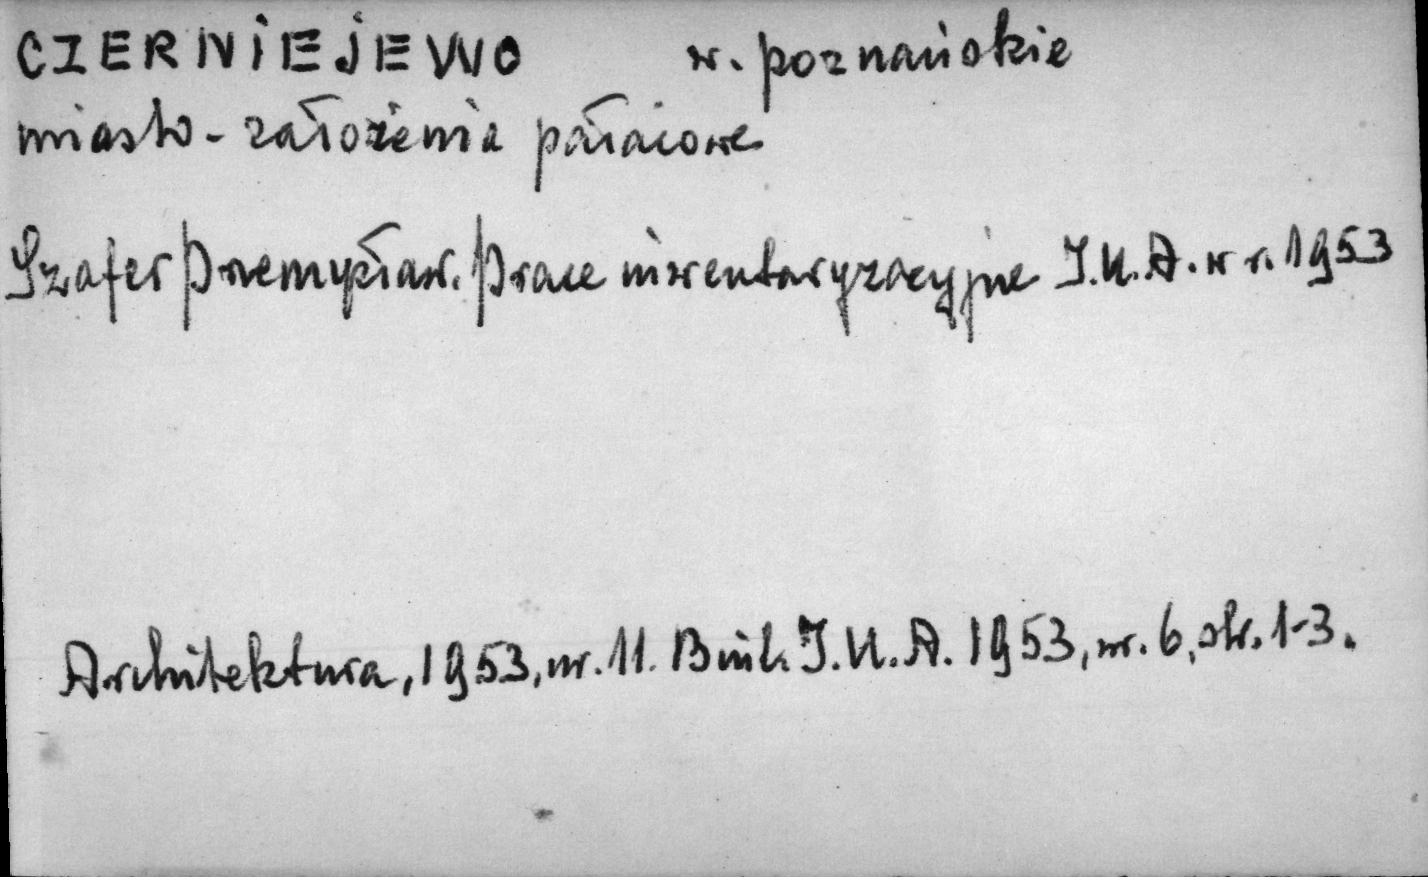 CZERNIEJEWO w. poznańskie
miasto - założenia pałacowe
Szafer Przemysław. Prace inwentaryzacyjne I.U.A. w r. 1953
Architektura, 1953, nr. 11. Biul. I.U.A. 1953, nr. 6, str. 1-3.